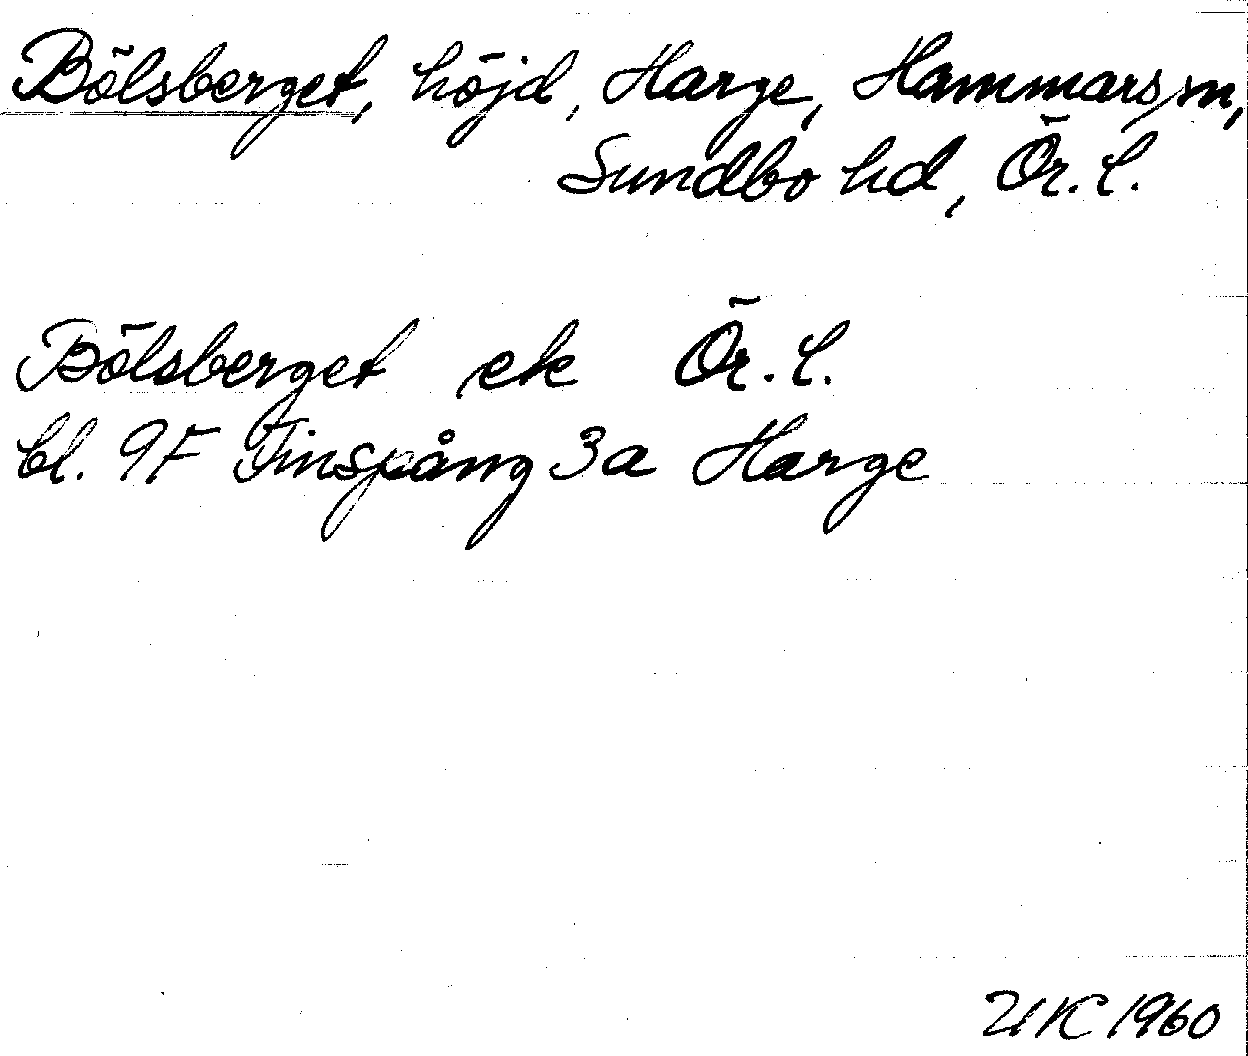 Bölsberget, höjd, Harge, Hammars sn,
Sundbo hd, Ör. l.
Bölsberget ek Ör. l.
bl. 9F Finspång 3a Harge
UK 1960